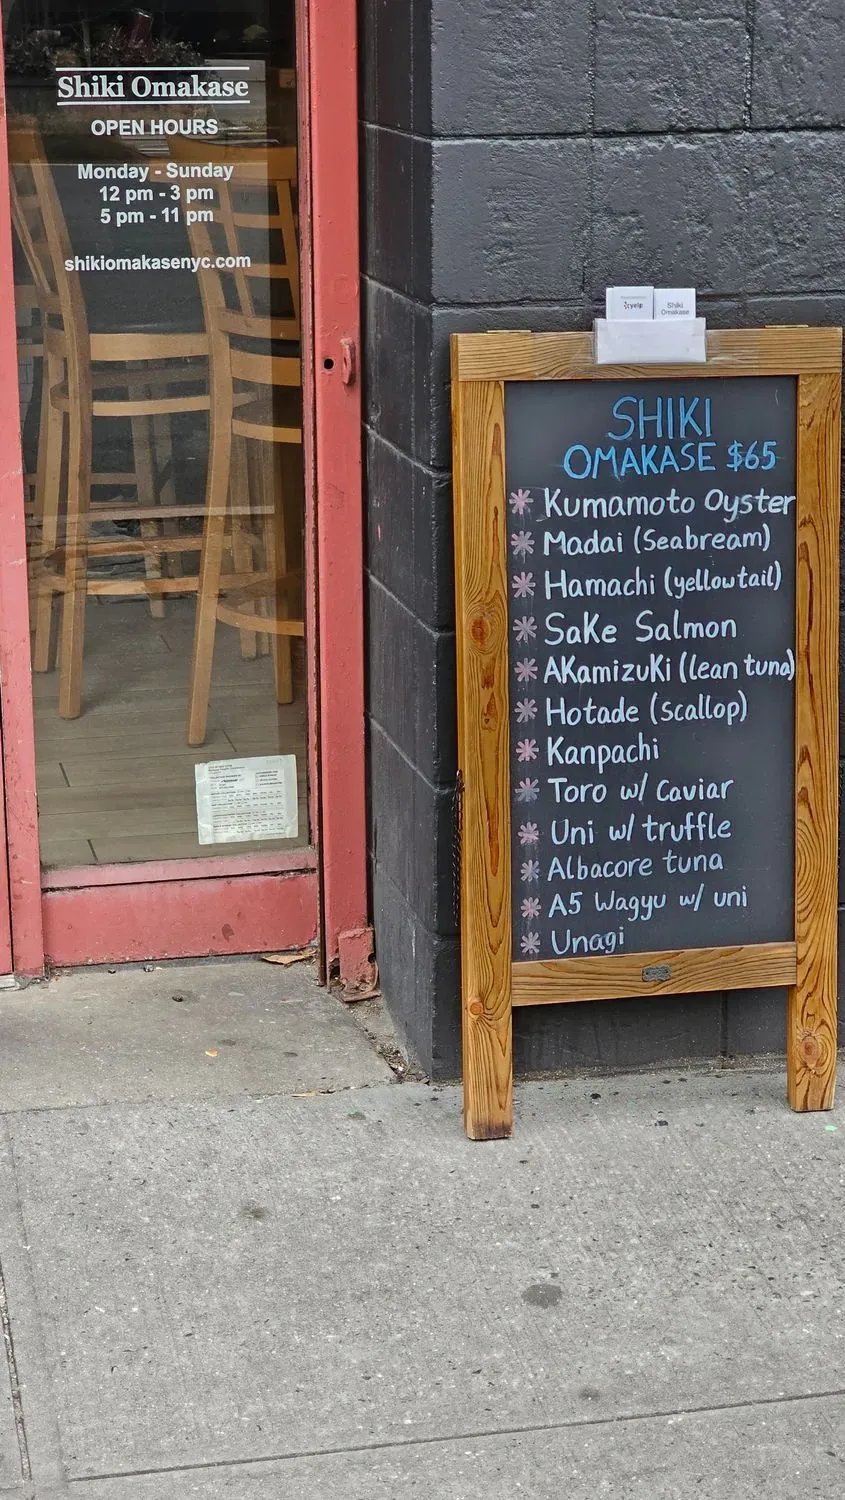 Shiki Omakase
OPEN HOURS
Monday - Sunday
12 pm - 3 pm
5 pm - 11 pm
shikiomakasenyc.com
yelp
Shiki
Omakase
SHIKI
OMAKASE $65
Kumamoto Oyster
Madai (Seabream)
Hamachi (yellowtail)
Sake Salmon
Akamizuki (lean tuna)
Hotade (scallop)
Kanpachi
Toro w/ Caviar
Uni w/ truffle
Albacore tuna
A5 Wagyu w/ uni
Unagi